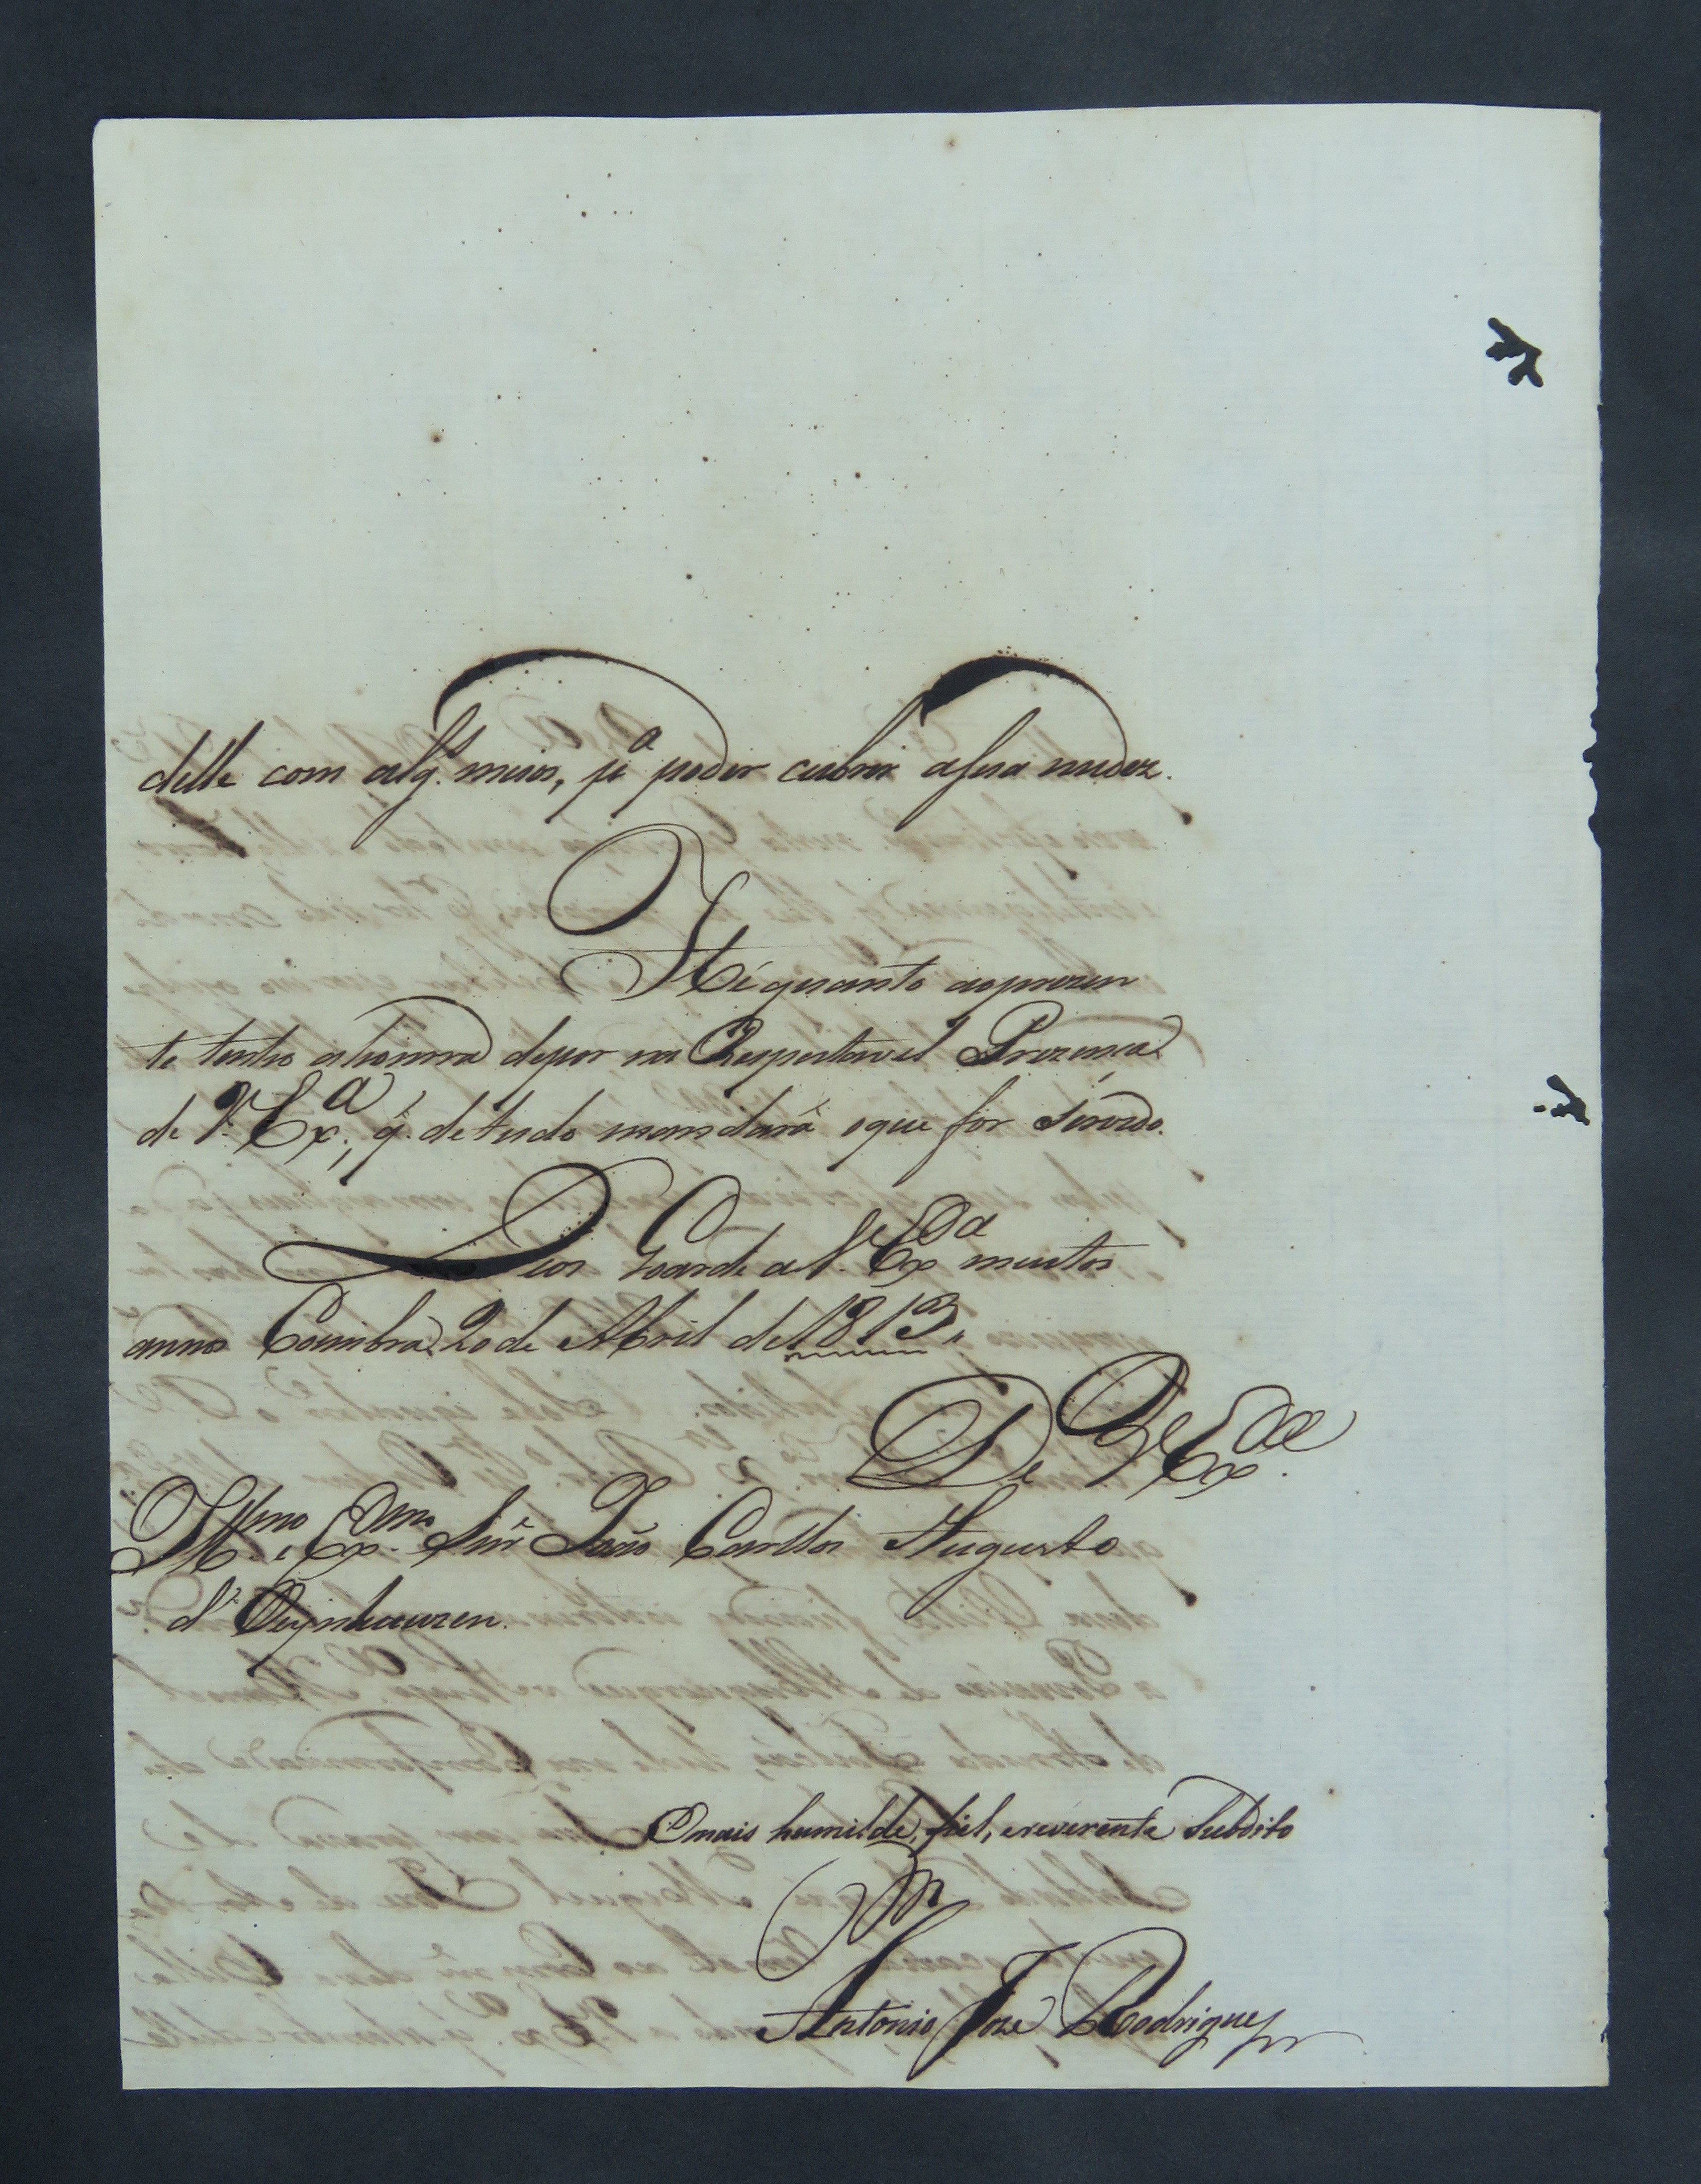 delle com alg.s meios, p.a poder cubrir a sua nudez.
Hé quanto ao prezen
te tenho a honrra de por na Respeitavel Prezença
de V. Ex.a, q. de tudo mandará o que for Servido.
Deos Goarde a V. Ex.a muitos
annos Coimbra 20 de Abril de 1813,,
De V. Ex.a
Ill.mo e Ex.mo Snr. João Carllos Augusto
d'Oeynhauzen.
O mais humilde, fiel, e reverente Subdito
Antonio Joze Rodrigues